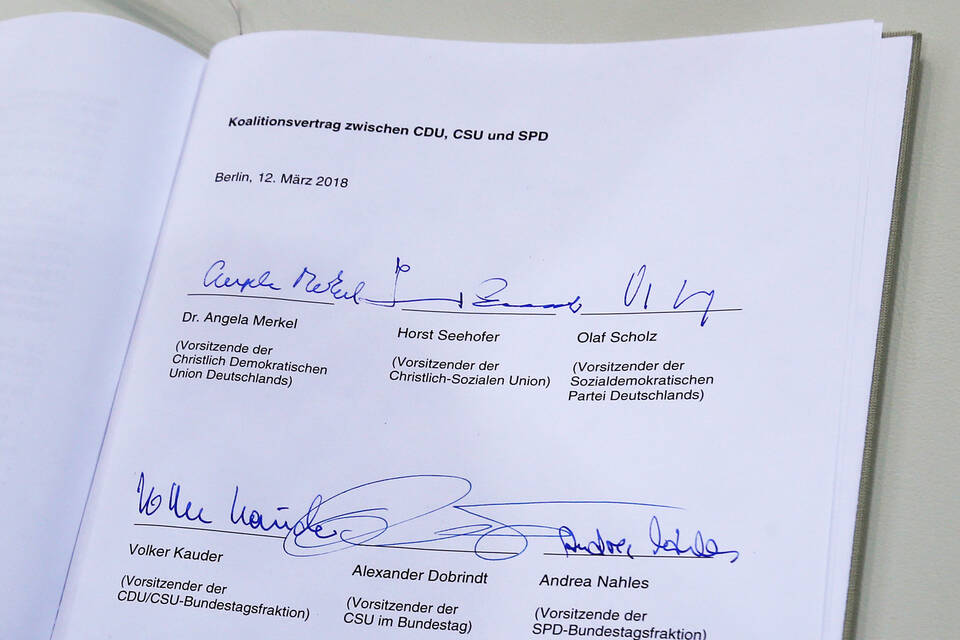 Koalitionsvertrag zwischen CDU, CSU und SPD
Berlin, 12. März 2018
Angela Merkel
Dr. Angela Merkel
(Vorsitzende der
Christlich Demokratischen
Union Deutschlands)
Horst Seehofer
(Vorsitzender der
Christlich-Sozialen Union)
Olaf Scholz
(Vorsitzender der
Sozialdemokratischen
Partei Deutschlands)
Volker Kauder
Volker Kauder
(Vorsitzender der
CDU/CSU-Bundestagsfraktion)
Alexander Dobrindt
(Vorsitzender der
CSU im Bundestag)
Andrea Nahles
Andrea Nahles
(Vorsitzende der
SPD-Bundestagsfraktion)